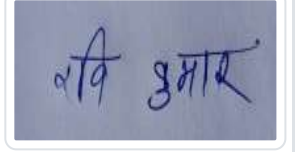 रवि कुमार